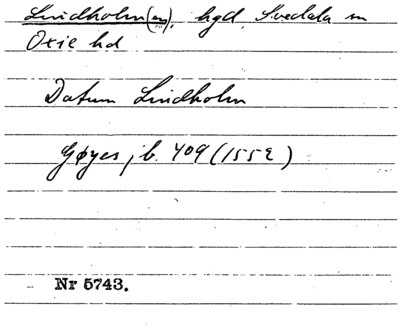 Lindholm(en), hgd, Svedala sn
Oxie hd
Datum Lindholm
Gøyes jb. 409 (1552)
Nr 5743.